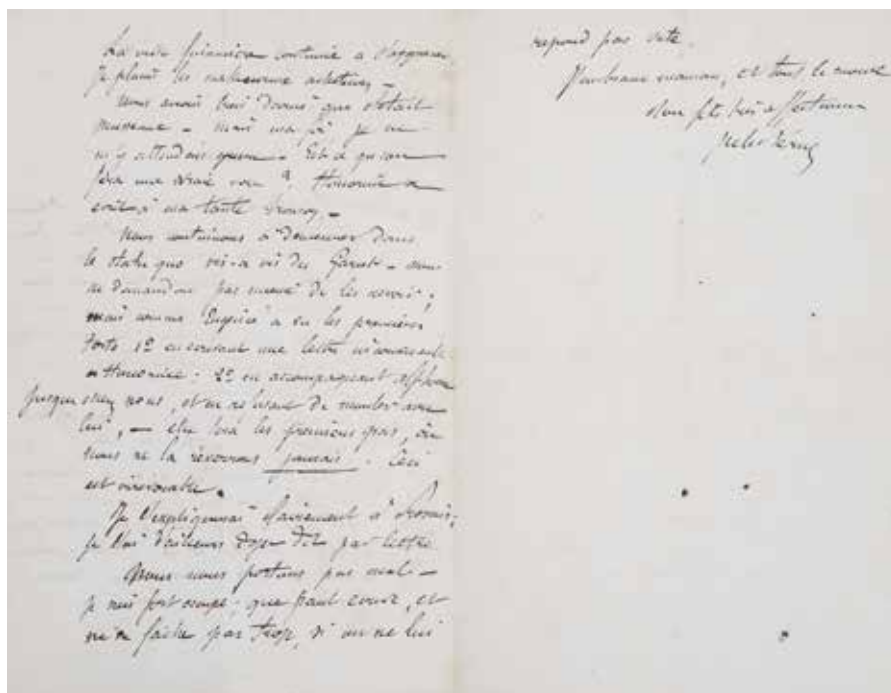 La crise financière continue à s'aggraver,
je plains les malheureux acheteurs. —
Nous avons bien deviné que c'était
— mais ma foi je ne
m'y attendais guère. — Est-ce qu'on
fera une vraie noce ? Honorine a
écrit à ma tante
Nous continuons à demeurer dans
le statu quo vis-à-vis des Garcet — nous
ne demandons pas mieux de les revoir ;
mais comme Eugénie a eu les premiers
torts 1º en écrivant une lettre inconvenante
à Honorine. 2º en accompagnant Alphonse
jusque chez nous, et en refusant de monter avec
lui, — elle fera les premiers pas, ou
nous ne la reverrons jamais. Ceci
est irrévocable.
Je l'expliquerai clairement à
je l'ai d'ailleurs déjà dit par lettre
Nous nous portons pas mal —
je suis fort occupé ; que Paul écrive, et
ne se fâche pas trop, si on ne lui
répond pas vite.
J'embrasse maman, et tout le monde
Ton fils très affectionné
Jules Verne